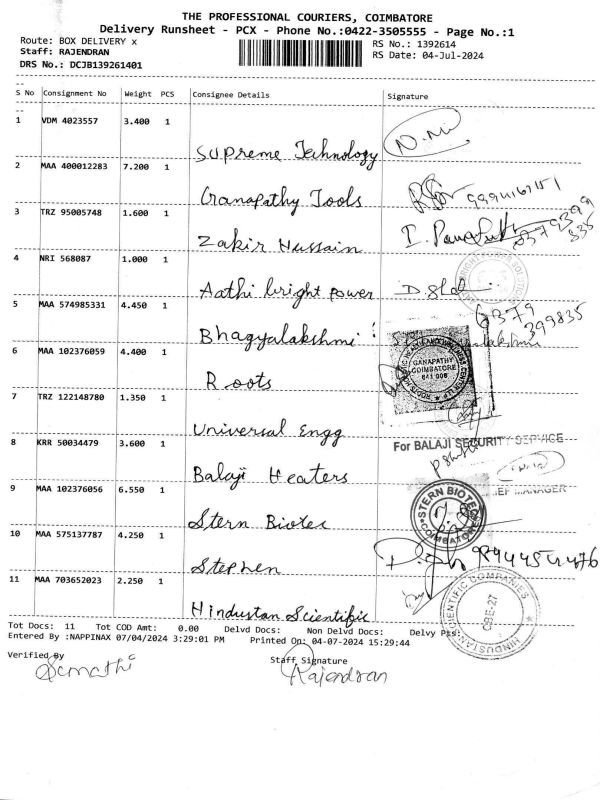 THE PROFESSIONAL COURIERS, COIMBATORE
Delivery Runsheet - PCX - Phone No.:0422-3505555 - Page No.:1
Route: BOX DELIVERY x
RS No.: 1392614
Staff: RAJENDRAN
RS Date: 04-Jul-2024
DRS No.: DCJB139261401
S No Consignment No Weight PCS Consignee Details Signature
1 VDM 4023557 3.400 1
Supreme Technology
2 MAA 400012283 7.200 1
Ganapathy Tools
3 TRZ 95005748 1.600 1
Zakir Hussain
4 NRI 568087 1.000 1
Aathi bright power
5 MAA 574985331 4.450 1
Bhagyalakshmi
6379
399835
6 MAA 102376059 4.400 1
Roots
GANAPATHY
COIMBATORE
641 006
7 TRZ 122148780 1.350 1
Universal Engg
8 KRR 50034479 3.600 1
For BALAJI SECURITY SERVICE
Balaji Heaters
9 MAA 102376056 6.550 1
MANAGER
Stern Biotec
STERN BIOTEC
COIMBATORE
10 MAA 575137787 4.250 1
Stephen
11 MAA 703652023 2.250 1
Hindustan Scientific
HINDUSTAN SCIENTIFIC COMPANY
CBE-27
Tot Docs: 11 Tot COD Amt: 0.00 Delvd Docs: Non Delvd Docs: Delvy Pss:
Entered By :NAPPINAX 07/04/2024 3:29:01 PM Printed On: 04-07-2024 15:29:44
Verified By
Staff Signature
Rajendran